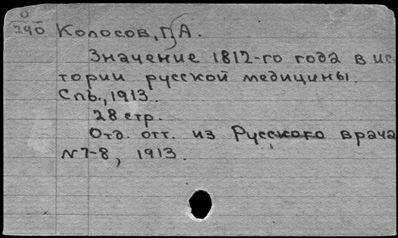 0
290
Колосов, Г. А.
Значение 1812-го года в ис
тории русской медицины.
Спб., 1913.
28 стр.
Отд. отт. из Русского врача
N7-8, 1913.